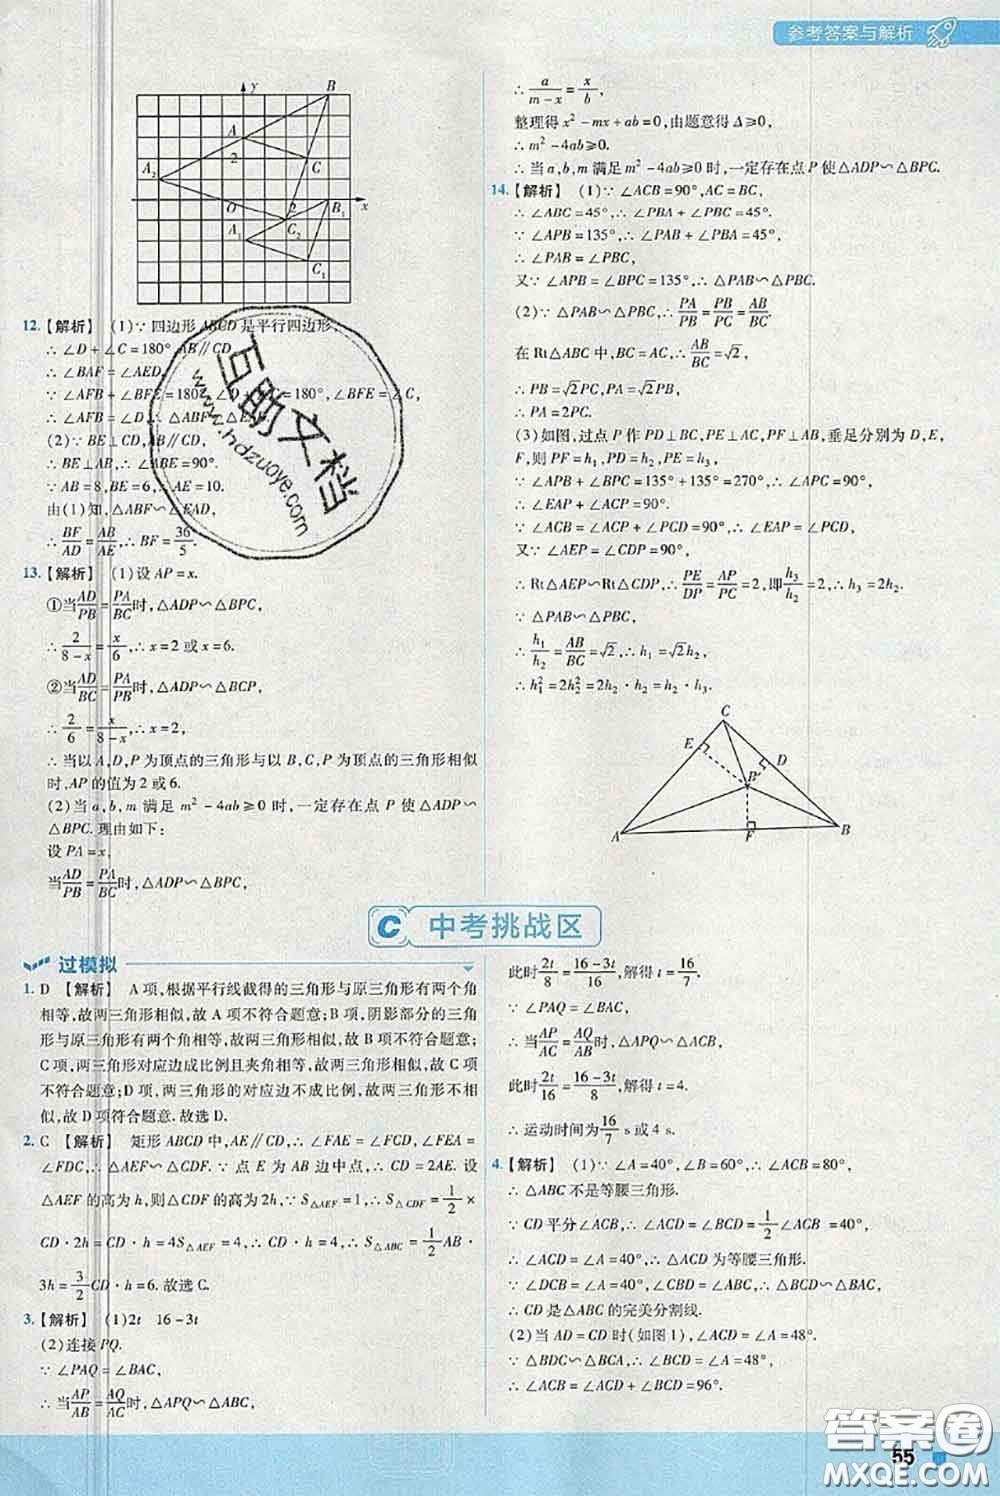 参考答案与解析
y
B
A
2
C
A₂
O
2
B₁
x
A₁
C₂
C₁
12.【解析】 (1)∵ 四边形 ABCD 是平行四边形,
∴ ∠D + ∠C = 180°, AB∥CD,
∴ ∠BAF = ∠AED.
∵ ∠AFB + ∠BFE = 180°, ∠D + ∠C = 180°, ∠BFE = ∠C,
∴ ∠AFB = ∠D, ∴ △ABF∽△EAD.
(2)∵ BE⊥CD, AB∥CD,
∴ BE⊥AB, ∴ ∠ABE = 90°.
∵ AB = 8, BE = 6, ∴ AE = 10.
由(1)知, △ABF∽△EAD,
∴ BF/AD = AB/AE, ∴ BF = 36/5.
13.【解析】 (1)设 AP = x.
①当 AD/PB = PA/BC 时, △ADP∽△BPC,
∴ 2/(8-x) = x/6, ∴ x = 2 或 x = 6.
②当 AD/BC = PA/PB 时, △ADP∽△BCP,
∴ 2/6 = x/(8-x), ∴ x = 2,
∴ 当以 A, D, P 为顶点的三角形与以 B, C, P 为顶点的三角形相似
时, AP 的值为 2 或 6.
(2)当 a, b, m 满足 m² - 4ab ≥ 0 时, 一定存在点 P 使 △ADP∽
△BPC. 理由如下:
设 PA = x,
当 AD/PB = PA/BC 时, △ADP∽△BPC,
∴ a/(m-x) = x/b,
整理得 x² - mx + ab = 0, 由题意得 Δ ≥ 0,
∴ m² - 4ab ≥ 0.
∴ 当 a, b, m 满足 m² - 4ab ≥ 0 时, 一定存在点 P 使 △ADP∽△BPC.
14.【解析】 (1)∵ ∠ACB = 90°, AC = BC,
∴ ∠ABC = 45°, ∴ ∠PBA + ∠PBC = 45°.
∵ ∠APB = 135°, ∴ ∠PAB + ∠PBA = 45°,
∴ ∠PAB = ∠PBC,
又∵ ∠APB = ∠BPC = 135°, ∴ △PAB∽△PBC.
(2)∵ △PAB∽△PBC, ∴ PA/PB = PB/PC = AB/BC.
在 Rt△ABC 中, AC = BC, ∴ AB/BC = √2,
∴ PB = √2PC, PA = √2PB,
∴ PA = 2PC.
(3)如图, 过点 P 作 PD⊥BC, PE⊥AC, PF⊥AB, 垂足分别为 D, E,
F, 则 PF = h₁, PD = h₂, PE = h₃,
∵ ∠APB + ∠BPC = 135° + 135° = 270°, ∴ ∠APC = 90°,
∴ ∠EAP + ∠ACP = 90°.
∵ ∠ACB = ∠ACP + ∠PCD = 90°, ∴ ∠EAP = ∠PCD,
又∵ ∠AEP = ∠CDP = 90°,
∴ Rt△AEP∽Rt△CDP, ∴ PE/DP = AP/PC = 2, 即 h₃/h₂ = 2, ∴ h₃ = 2h₂.
∵ △PAB∽△PBC,
∴ h₁/h₂ = AB/BC = √2, ∴ h₁ = √2h₂,
∴ h₁² = 2h₂² = 2h₂ · h₂ = h₂ · h₃.
C
E
D
P
A
F
B
C 中考挑战区
过模拟
1. D 【解析】 A 项, 根据平行线截得的三角形与原三角形有两个角
相等, 故两三角形相似, 故 A 项不符合题意; B 项, 阴影部分的三角
形与原三角形有两个角相等, 故两三角形相似, 故 B 项不符合题意;
C 项, 两三角形对应边成比例且夹角相等, 故两三角形相似, 故 C 项
不符合题意; D 项, 两三角形的对应边不成比例, 故两三角形不相
似, 故 D 项符合题意. 故选 D.
2. C 【解析】 矩形 ABCD 中, AE∥CD, ∴ ∠FAE = ∠FCD, ∠FEA =
∠FDC, ∴ △AEF∽△CDF. ∵ 点 E 为 AB 边中点, ∴ CD = 2AE. 设
△AEF 的高为 h, 则 △CDF 的高为 2h, ∵ S△AEF = 1, ∴ S△CDF = 1/2 ×
CD · 2h = CD · h = 4S△AEF = 4, ∴ CD · h = 4, ∴ S△ABC = 1/2 AB ·
3h = 3/2 CD · h = 6. 故选 C.
3.【解析】 (1)2t 16 - 3t
(2)连接 PQ.
∵ ∠PAQ = ∠BAC,
∴ 当 AP/AB = AQ/AC 时, △APQ∽△ABC,
此时 2t/8 = (16-3t)/16, 解得 t = 16/7.
∵ ∠PAQ = ∠BAC,
∴ 当 AP/AC = AQ/AB 时, △APQ∽△ACB,
此时 2t/16 = (16-3t)/8, 解得 t = 4.
∴ 运动时间为 16/7 s 或 4 s.
4.【解析】 (1)∵ ∠A = 40°, ∠B = 60°, ∴ ∠ACB = 80°,
∴ △ABC 不是等腰三角形.
∵ CD 平分∠ACB, ∴ ∠ACD = ∠BCD = 1/2 ∠ACB = 40°,
∴ ∠ACD = ∠A = 40°, ∴ △ACD 为等腰三角形.
∵ ∠DCB = ∠A = 40°, ∠CBD = ∠ABC, ∴ △BCD∽△BAC,
∴ CD 是 △ABC 的完美分割线.
(2)当 AD = CD 时(如图 1), ∠ACD = ∠A = 48°.
∵ △BDC∽△BCA, ∴ ∠BCD = ∠A = 48°,
∴ ∠ACB = ∠ACD + ∠BCD = 96°.
互助文档
www.hdzuoye.com
答案圈
MXQE.COM
55